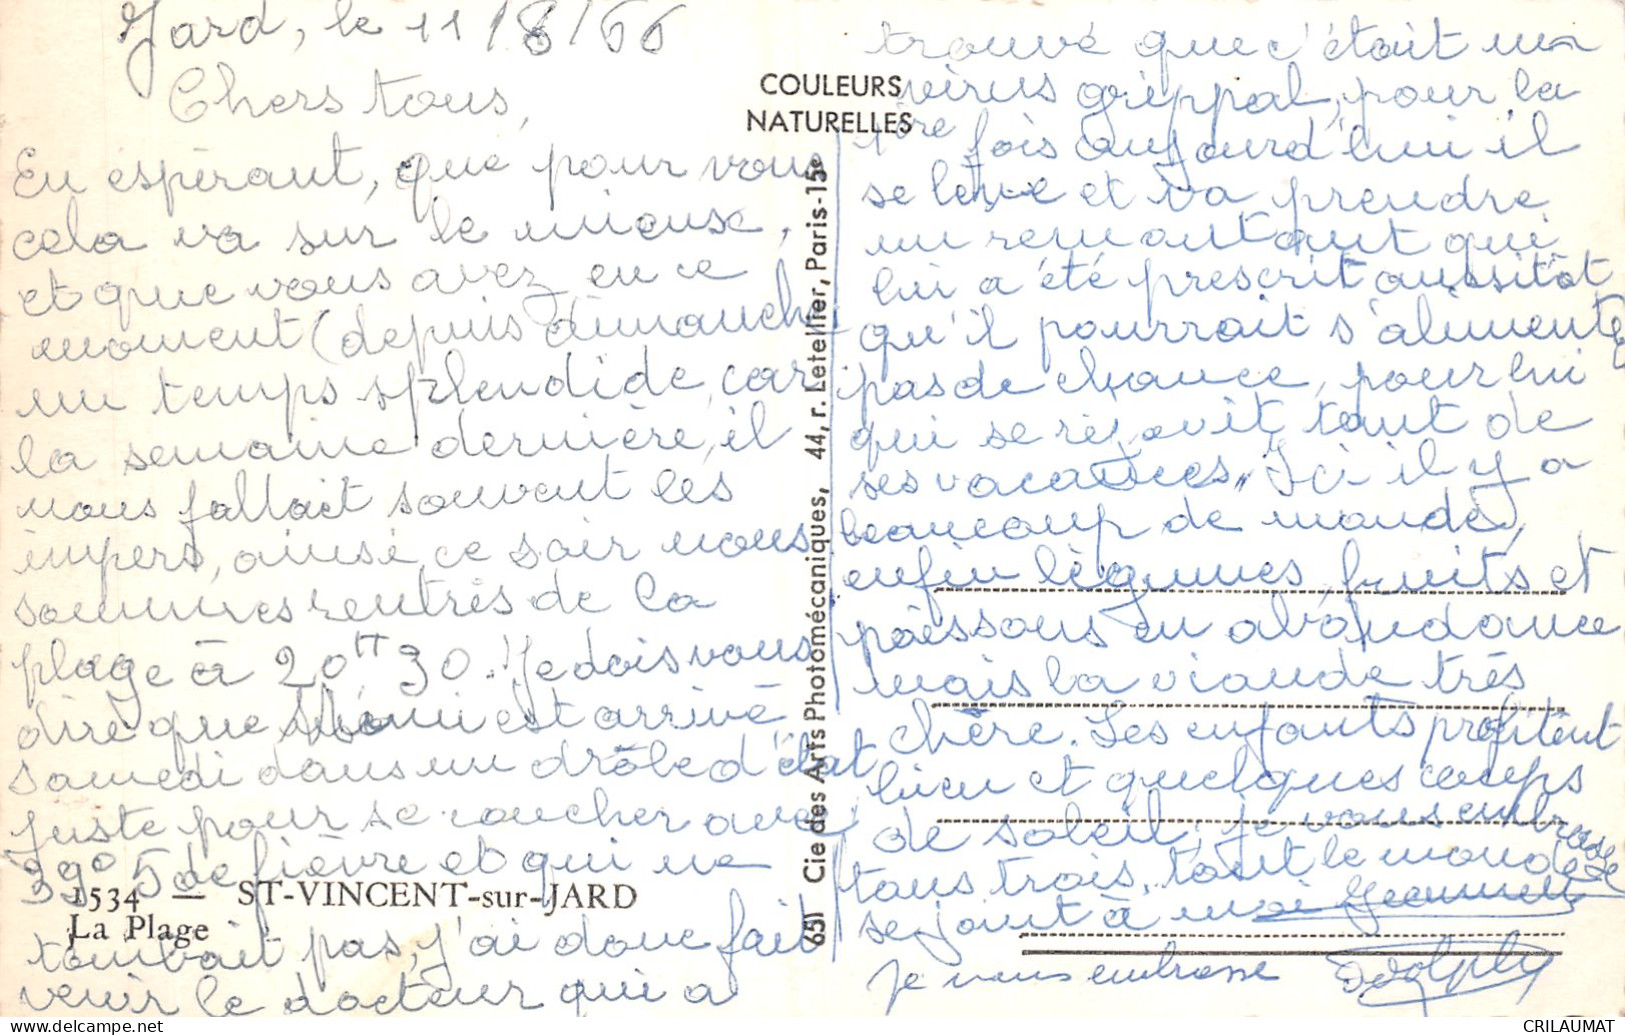 Jard, le 11/8/66
Chers tous,
En espérant, que pour vous
cela va sur le mieux,
et que vous avez en ce
moment (depuis dimanche
un temps splendide, car
la semaine dernière, il
nous fallait souvent les
impers, ainsi ce soir nous
sommes rentrés de la
plage à 20H30. Je dois vous
dire que est arrivé
samedi dans un drôle d'état
juste pour se coucher avec
39°5 de fièvre et qui ne
tombait pas, j'ai donc fait
venir le docteur qui a
1534 — ST-VINCENT-sur-JARD
La Plage
COULEURS
NATURELLES
651 Cie des Arts Photomécaniques, 44, r. Letellier, Paris-15e
trouvé que c'était un
virus grippal, pour la
1ère fois aujourd'hui il
se lève et va prendre
un remontant qui
lui a été prescrit aussitôt
qu'il pourrait s'alimenter
pas de chance, pour lui
qui se réjouit tant de
ses vacances. Ici il y a
beaucoup de monde,
enfin légumes, fruits et
poissons en abondance
mais la viande très
chère. Les enfants profitent
bien et quelques coups
de soleil, je vous embrasse
tous trois, tout le monde se
se joint à moi Jeannette
Je vous embrasse Adolphe
CRILAUMAT